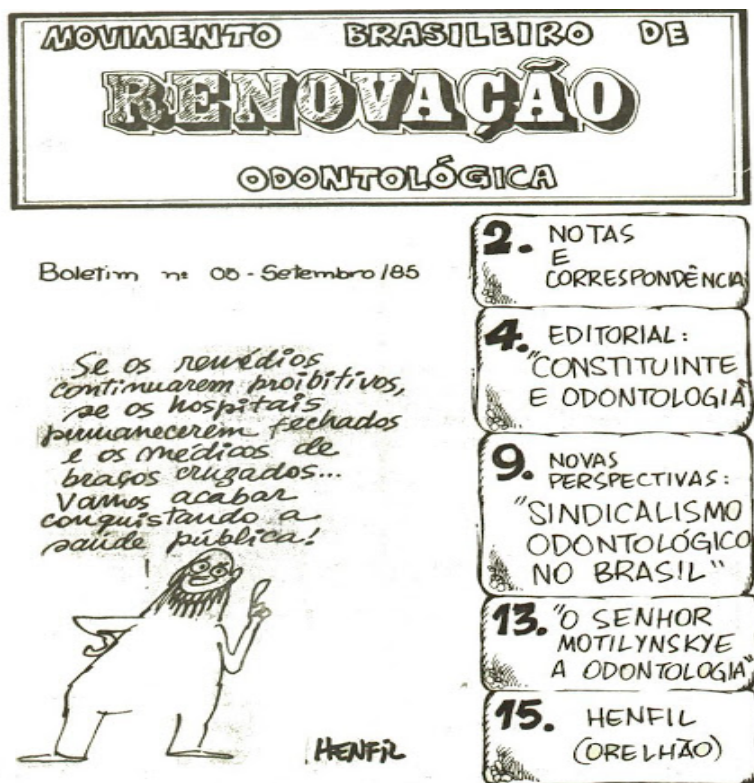 MOVIMENTO BRASILEIRO DE
RENOVAÇÃO
ODONTOLÓGICA
Boletim nº 05 - Setembro/85
Se os remédios
continuarem proibitivos,
se os hospitais
permanecerem fechados
e os médicos de
braços cruzados...
Vamos acabar
conquistando a
saúde pública!
HENFIL
2. NOTAS
E
CORRESPONDÊNCIA
4. EDITORIAL:
"CONSTITUINTE
E ODONTOLOGIA"
9. NOVAS
PERSPECTIVAS:
"SINDICALISMO
ODONTOLÓGICO
NO BRASIL"
13. "O SENHOR
MOTILYNSKYE
A ODONTOLOGIA"
15. HENFIL
(ORELHÃO)